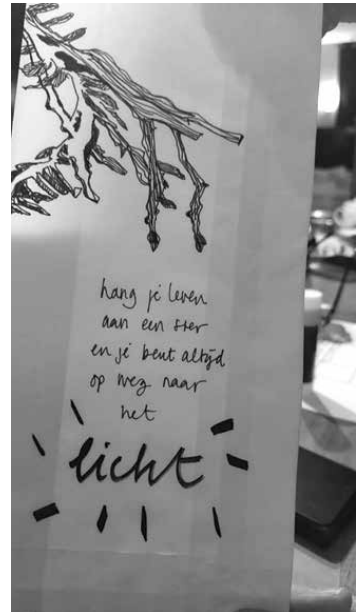 hang je leven
aan een ster
en je bent altijd
op weg naar
het
licht